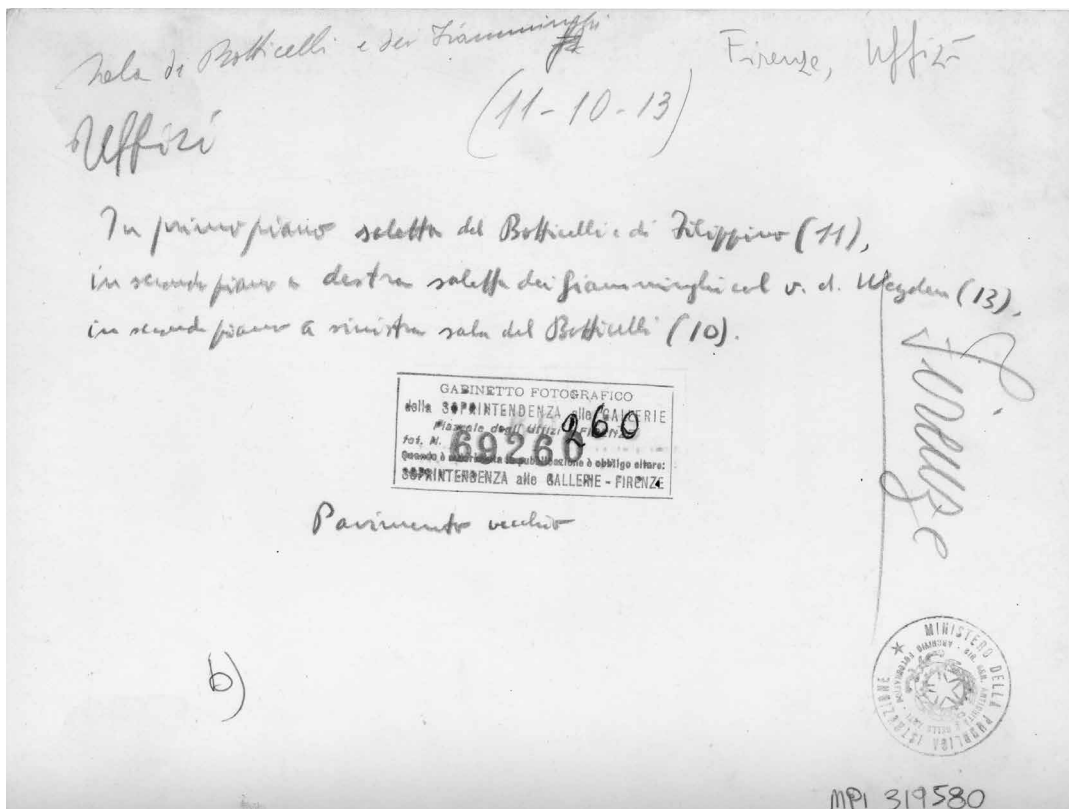 Sala di Botticelli e dei Fiamminghi
Firenze, Uffizi
(11-10-13)
Uffizi
In primo piano saletta del Botticelli e di Filippino (11),
in secondo piano a destra saletta dei Fiamminghi col v. d. Weyden (13),
in secondo piano a sinistra sala del Botticelli (10).
Firenze
GABINETTO FOTOGRAFICO
della SOPRINTENDENZA alle GALLERIE
Piazzale degli Uffizi - FIRENZE
fot. N. 69260 260
Quando è autorizzata la pubblicazione è obbligo citare:
SOPRINTENDENZA alle GALLERIE - FIRENZE
Pavimento vecchio
b)
MINISTERO DELLA PUBBLICA ISTRUZIONE
MPI 319580